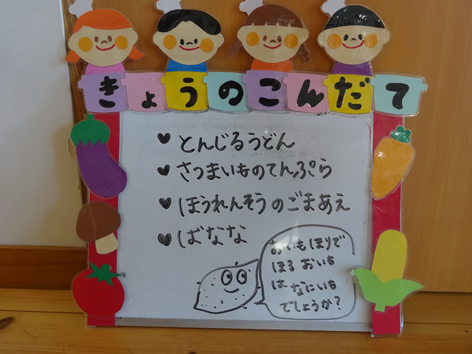 きょうのこんだて
♥とんじるうどん
♥さつまいものてんぷら
♥ほうれんそうのごまあえ
♥ばなな
おいもほりで
ほる おいも
は なにいも
でしょうか?